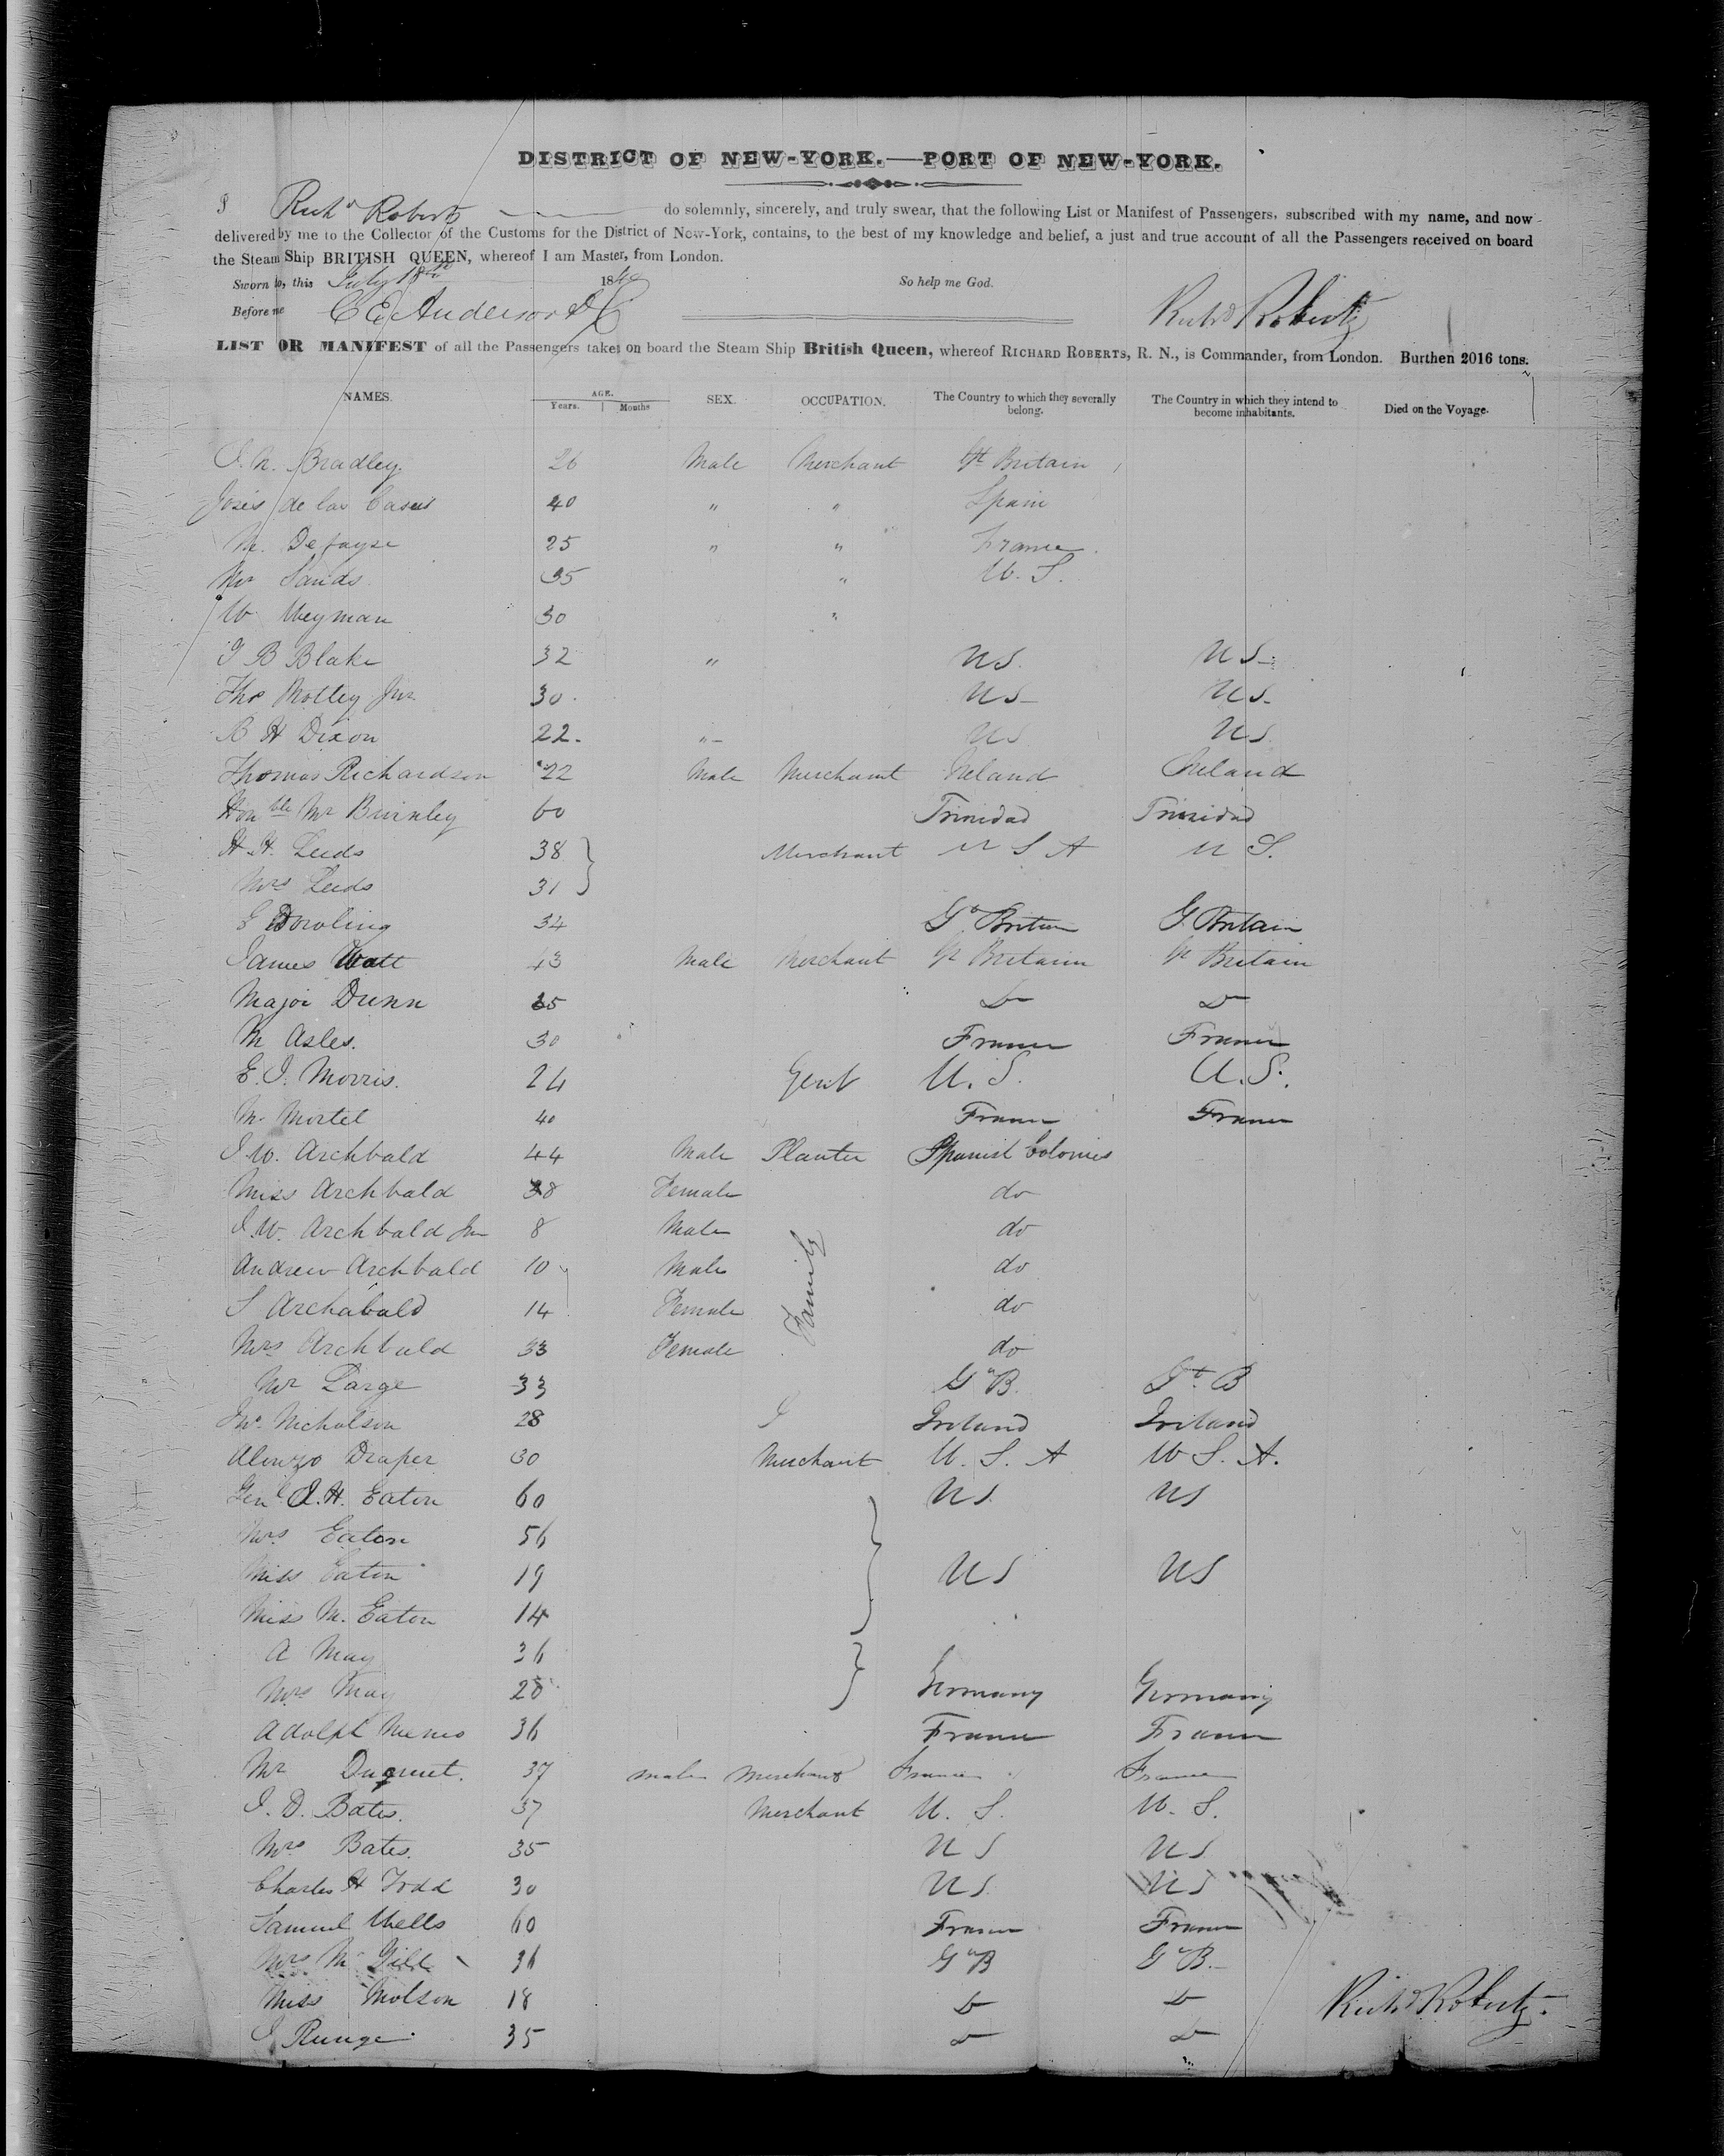 DISTRICT OF NEW-YORK.—PORT OF NEW-YORK.
I Richd Roberts do solemnly, sincerely, and truly swear, that the following List or Manifest of Passengers, subscribed with my name, and now
delivered by me to the Collector of the Customs for the District of New-York, contains, to the best of my knowledge and belief, a just and true account of all the Passengers received on board
the Steam Ship BRITISH QUEEN, whereof I am Master, from London.
Sworn to, this July 18th 1840 So help me God.
Before me C E Anderson DC Richd Roberts
LIST OR MANIFEST of all the Passengers taken on board the Steam Ship British Queen, whereof RICHARD ROBERTS, R. N., is Commander, from London. Burthen 2016 tons.
NAMES. AGE. SEX. OCCUPATION. The Country to which they severally belong. The Country in which they intend to become inhabitants. Died on the Voyage.
Years. Months
Bradley 26 Male Merchant Gt Britain
de las Casas 40 " " Spain
M. Defayse 25 " " France
Mr Sands 35 " U. S.
W Weyman 30 "
J B Blake 32 " US. US.
Thos Motley Jnr 30 US US.
B H Dixon 22 " US US
Thomas Richardson 22 Male Merchant Ireland Ireland
Honble Mr Burnley 60 Trinidad Trinidad
H. H. Leeds 38 Merchant U S A U S.
Mrs Leeds 31
E Dowling 34 Gt Britain G Britain
James Watt 43 Male Merchant Gt Britain Gt Britain
Major Dunn 35 Do Do
M Asles. 30 France France
E. J. Morris. 24 Gent U. S. U. S.
M. Mortel 40 France France
J. W. Archbald 44 Male Planter Spanish Colonies
Miss Archbald 38 Female do
J. W. Archbald Jnr 8 Male do
Andrew Archbald 10 Male do
S Archabald 14 Female Family do
Mrs Archbald 33 Female do
Mr Large 33 Gt B. Gt B
Jno. Nicholson 28 Ireland Ireland
Alonzo Draper 30 Merchant U. S. A U S. A.
Genl J. H. Eaton 60 US. US
Mrs Eaton 56
Miss Eaton 19 US US
Miss M. Eaton 14
A May 36
Mrs May 28 Germany Germany
Adolph 36 France France
Mr 37 Male Merchant France France
J. D. Bates. 37 Merchant U. S. U. S.
Mrs Bates. 35 U S U S
Charles H Todd 30 US. US
Samuel Wells 60 France France
Mrs Mc Gill 36 Gt B Gt B.
Miss Molson 18 Do Do Richd Roberts.
J Runge 35 Do Do